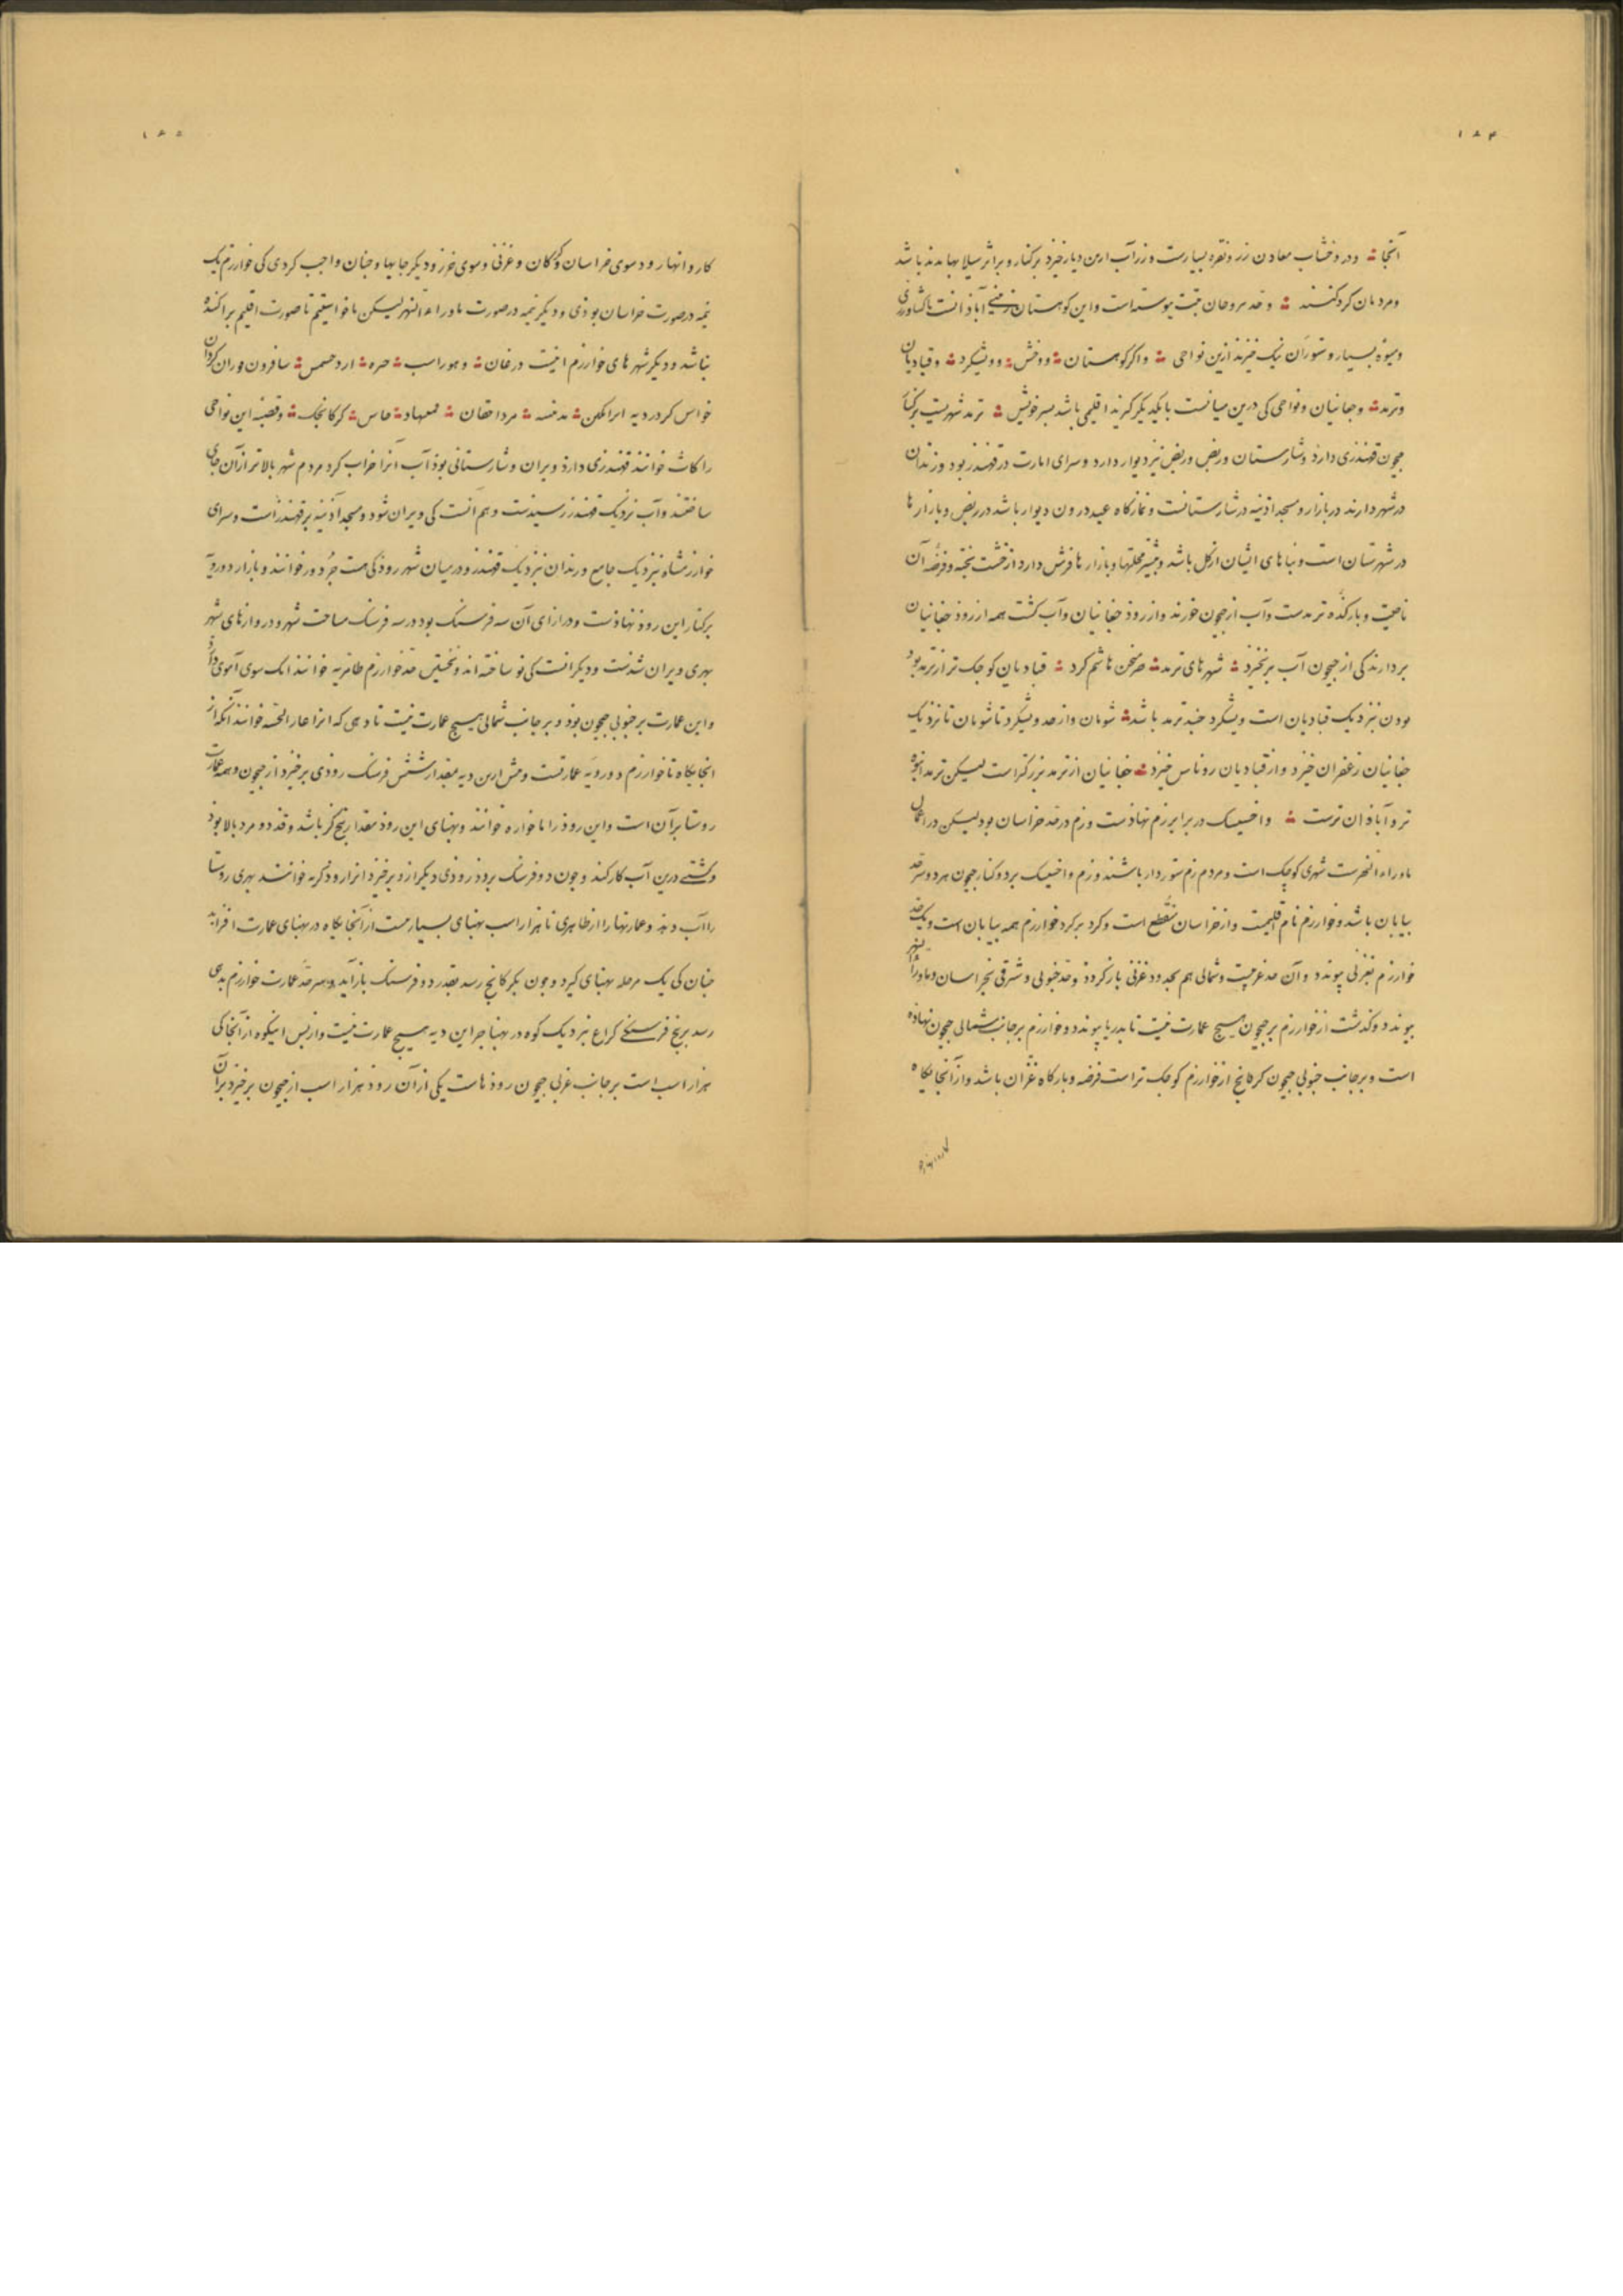 ۱۸۴
آنجا ؞ و در وخشاب معادن زر و نقره بسیارست و زر آب ازین دیار خیزد برکنار و براثر سیلابها بدید باشد
و مردمان کرد کنند ؞ و حد تبت پیوسته است و این کوهستان زمینی آبادانست با کشاورزی
و میوه بسیار و ستوران نیک خیزند ازین نواحی ؞ و اکر کوهستان ؞ و وخش ؞ و ویشکرد ؞ و قبادیان
و ترمد ؞ و جغانیان و نواحی کی درین میانست با یکدیکر کیرند اقلیمی باشد بسر خویش ؞ ترمد شهریست برکنار
جیحون قهندزی دارد و شارستان و ربض و ربض نیز دیوار دارد و سرای امارت در قهندز بود و زندان
در شهر دارند در بازار و مسجد اذینه در شارستانست و نمازکاه عید درون دیوار باشد در ربض و بازارها
در شهرستان است و بناهای ایشان از کل باشد و بیشتر محلتها و بازارها فرش دارد از خشت پخته و فرضه آن
ناحیت و بارکده ترمدست و آب از جیحون خورند و از رود جغانیان و آب کشت همه از رود جغانیان
بردارند کی از جیحون آب برنخیزد ؞ شهرهای ترمد ؞ صرمنجن هاشم کرد ؞ قبادیان کوجک تر از ترمد بود
بودن نزدیک قبادیان است ویشکرد جند ترمد باشد ؞ شومان و از حد ویشکرد تا شومان تا نزدیک
جغانیان زعفران خیزد و از قبادیان روناس خیزد ؞ جغانیان از ترمد بزرکتر است لیکن ترمد انبوه
تر و آبادان ترست ؞ و اخسیسک در برابر زم نهادست و زم در حد خراسان بود لیکن در اعمال
ماوراء النهرست شهری کوچک است و مردم زم ستوردار باشند و زم و اخسیسک بر دو کنار جیحون هر دو سرحد
بیابان باشد و خوارزم نام اقلیمست و از خراسان منقطع است و کرد برکرد خوارزم همه بیابان است و یک حد
خوارزم بغزنی پیوندد و آن حد غربیست و شمالی هم بحدود غزنی بازکردد و حد جنوبی و شرقی بخراسان و ماوراء النهر
پیوندد و کذشت از خوارزم بر جیحون هیچ عمارت نیست تا بدریا پیوندد و خوارزم بر جانب شمالی جیحون نهاده
است و بر جانب جنوبی جیحون کرکانج از خوارزم کوجک تر است فرضه و بارکاه غزان باشد و از آنجایکاه
کاروانها
۱۸۵
کاروانها رود سوی خراسان و کرکان و غزنی و سوی خزر و دیکر جایها و جنان واجب کردی کی خوارزم یک
نیمه در صورت خراسان بودی و دیکر نیمه در صورت ماوراء النهر لیکن ما خواستیم تا صورت اقلیم پراکنده
نباشد و دیکر شهرهای خوارزم اینست درغان ؞ و هزاراسب ؞ خیوه ؞ اردخسمس ؞ سافردز نوزوار کردران
خواس کردر دیه ؞ مدمینیه ؞ مرداجقان ؞ ؞ ؞ کرکانجک ؞ و قصبه این نواحی
را کاث خوانند قهندزی دارد ویران و شارستانی بود آب آنرا خراب کرد مردم شهر بالاتر از آن جای
ساختند و آب نزدیک قهندز رسیدست و بیم آنست کی ویران شود و مسجد آذینه بر قهندز است و سرای
خوارزمشاه نزدیک جامع و زندان نزدیک قهندز و در میان شهر رودکی هست جردور خوانند و بازار دورویه
برکنار این رود نهادست و درازای آن سه فرسنک بود در سه فرسنک مساحت شهر و دروازهای شهر
بهری ویران شدست و دیکر آنست کی نو ساخته اند و نخستین حد خوارزم طاهریه خوانند انک سوی آموی دارد
و این عمارت بر جنوبی جیحون بود و بر جانب شمالی هیچ عمارت نیست تا دهی که انرا غارابخشه خوانند آنکه از
انجایکاه تا خوارزم دورویه عمارتست و پیش ازین دیه بمقدار شش فرسنک رودی برخیزد از جیحون و همه عمارت
روستا بر آن است و این رود را کاوخواره خوانند و بهنای این رود مقدار پنج کز باشد و قد دو مرد بالا بود
و کشتی درین آب کار کند و جون دو فرسنک برود رودی دیکر ازو برخیزد انرا رود کریه خوانند بهری روستا
را آب دهد و عمارتها را از طاهری تا هزاراسب بهنای بسیارست از آنجایکاه در بهنای عمارت افزاید
جنان کی یک مرحله بهنای کیرد و جون بکرکانج رسد بقدر دو فرسنک بازآید و سرحد عمارت خوارزم بدهی
رسد بر پنج فرسنکی کراغ نزدیک کوه در بهنا جز این دیه هیچ عمارت نیست و از پس اینکوه از آنجا کی
هزاراسب است بر جانب غربی جیحون رودهاست یکی از آن رود هزاراسب از جیحون برخیزد بر آن